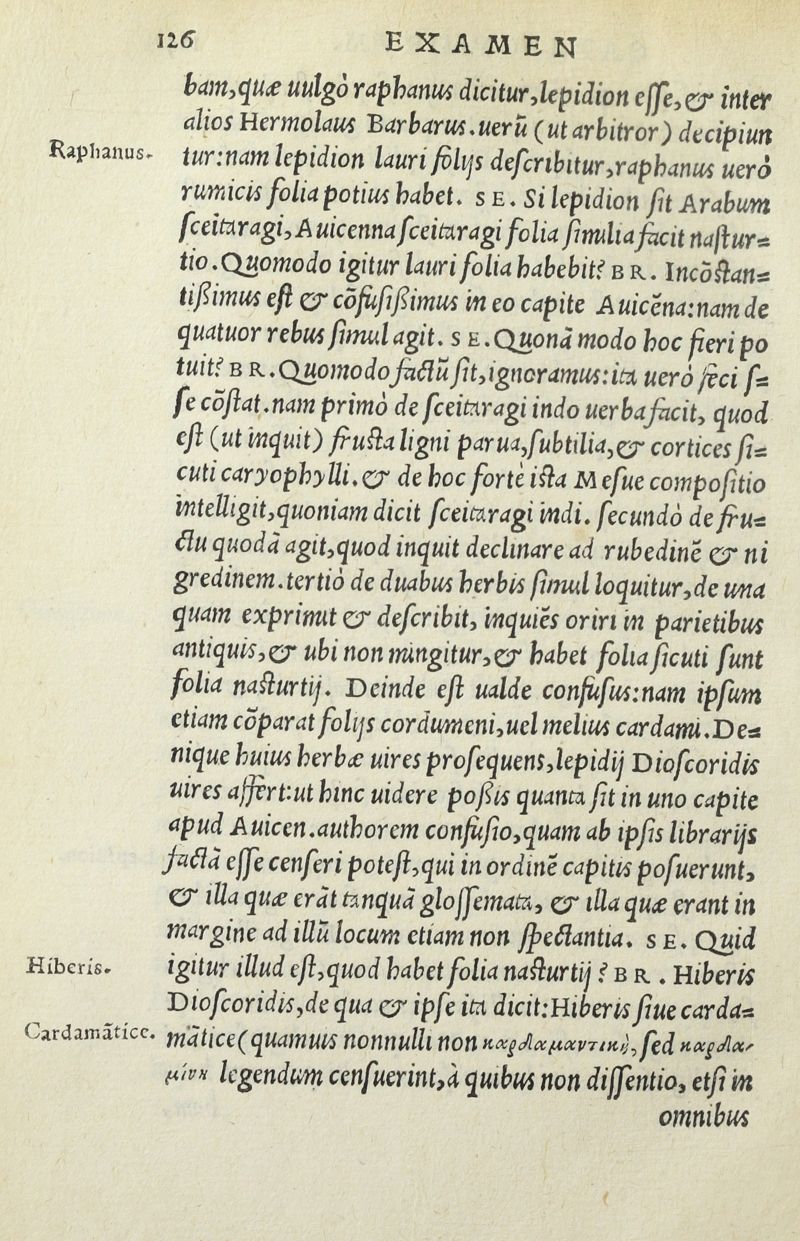 126 EXAMEN
bam, quæ uulgò raphanus dicitur, lepidion esse, & inter
alios Hermolaus Barbarus. uerũ (ut arbitror) decipiun
Raphanus.
tur: nam lepidion lauri folijs describitur, raphanus uerò
rumicis folia potius habet. SE. Si lepidion sit Arabum
sceitaragi, Auicenna sceitaragi folia similia facit nastur=
tio. Quomodo igitur lauri folia habebit? BR. Incõstan=
tißimus est & cõfusißimus in eo capite Auicẽna: nam de
quatuor rebus simul agit. SE. Quonã modo hoc fieri po
tuit? BR. Quomodo factũ sit, ignoramus: ita uerò seci s=
se cõstat. nam primò de sceitaragi indo uerba facit, quod
est (ut inquit) frusta ligni parua, subtilia, & cortices si=
cuti caryophylli. & de hoc fortè ista Mesue compositio
intelligit, quoniam dicit sceitaragi indi. secundò de fru=
ctu quodã agit, quod inquit declinare ad rubedinẽ & ni
gredinem. tertiò de duabus herbis simul loquitur, de una
quam exprimit & describit, inquiẽs oriri in parietibus
antiquis, & ubi non mingitur, & habet folia sicuti sunt
folia nasturtij. Deinde est ualde confusus: nam ipsum
etiam cõparat folijs cordumeni, uel melius cardami. De=
nique huius herbæ uires prosequens, lepidij Dioscoridis
uires affert: ut hinc uidere poßis quanta sit in uno capite
apud Auicen. authorem confusio, quam ab ipsis librarijs
factã esse censeri potest, qui in ordinẽ capitis posuerunt,
& illa quæ erãt tanquã glossemata, & illa quæ erant in
margine ad illũ locum etiam non spectantia. SE. Quid
Hiberis.
igitur illud est, quod habet folia nasturtij? BR. Hiberis
Dioscoridis, de qua & ipse ita dicit: Hiberis siue carda=
Cardamãtice.
mãtice (quamuis nonnulli non καρδαμαντικὴ, sed καρδα-
μίνη legendum censuerint, à quibus non dissentio, etsi in
omnibus